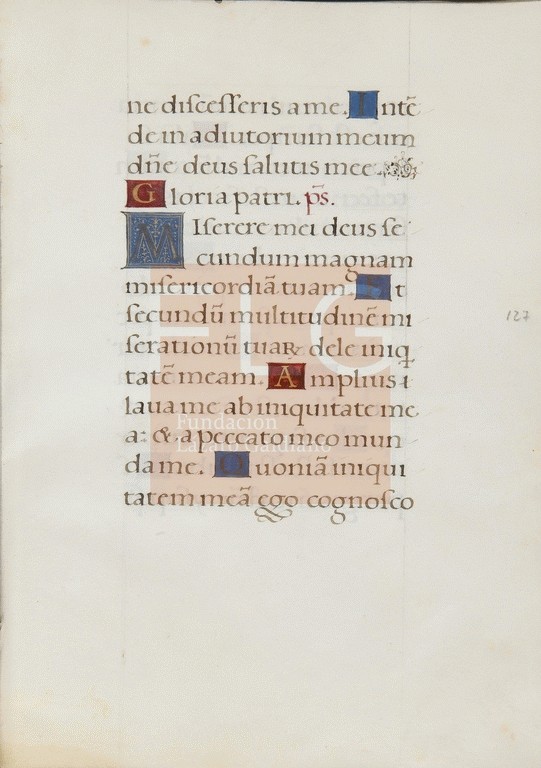 ne diſceſſeris a me. Intē
de in adiutorium meum
dn̄e deus ſalutis mee
Gloria patri. ps̄.
Miſerere mei deus ſe
cundum magnam
miſericordiā tuam. Et
ſecundū multitudinē mi
ſerationū tuaꝝ dele iniq
tatē meam. Amplius
laua me ab iniquitate me
a: & a peccato meo mun
da me. Quoniā iniqui
tatem meā ego cognoſco
127
FLG
Fundación
Lázaro Galdiano